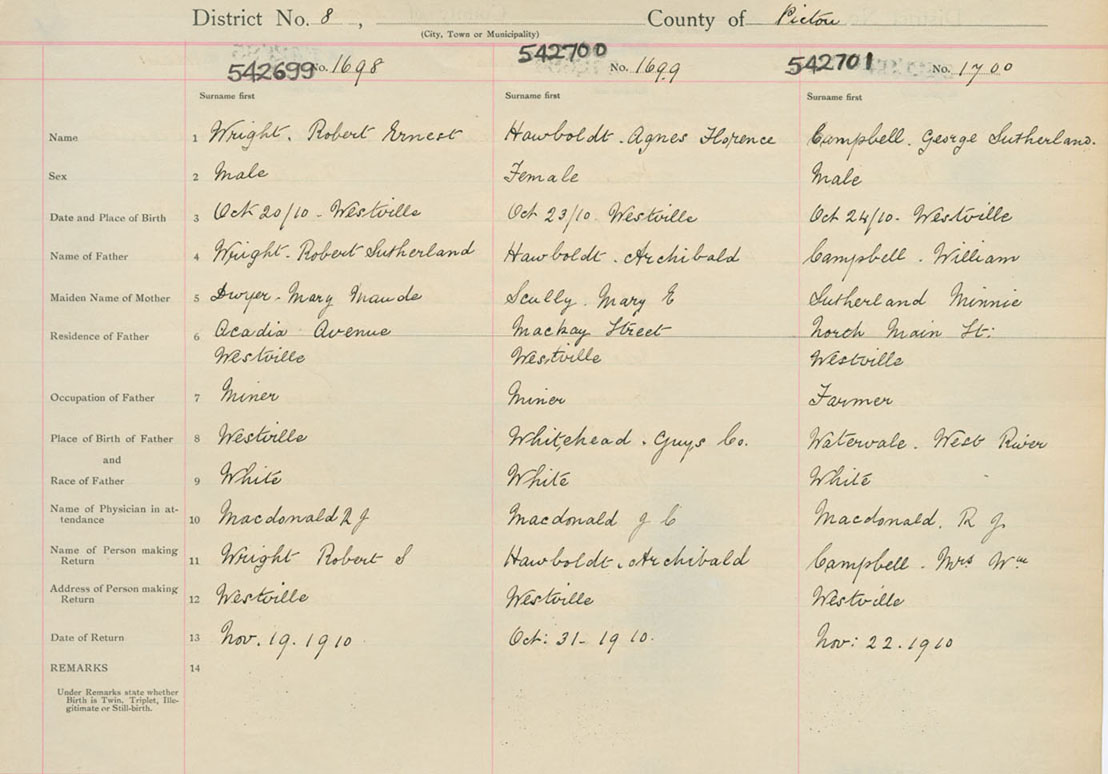 District No. 8, County of Pictou
(City, Town or Municipality)
542699 No. 1698 542700 No. 1699 542701 No. 1700
Surname first Surname first Surname first
Name 1 Wright. Robert Ernest Hawboldt. Agnes Florence Campbell. George Sutherland.
Sex 2 Male Female Male
Date and Place of Birth 3 Oct 20/10 - Westville Oct 23/10. Westville Oct 24/10 - Westville
Name of Father 4 Wright. Robert Sutherland Hawboldt. Archibald Campbell. William
Maiden Name of Mother 5 Dwyer - Mary Maude Scully. Mary E Sutherland Minnie
Residence of Father 6 Acadia Avenue Mackay Street North Main St:
Westville Westville Westville
Occupation of Father 7 Miner Miner Farmer
Place of Birth of Father 8 Westville Whitehead. Guys Co. Watervale. West River
and
Race of Father 9 White White White
Name of Physician in at-
tendance 10 Macdonald R J Macdonald J C Macdonald. R J.
Name of Person making
Return 11 Wright Robert S Hawboldt. Archibald Campbell. Mrs Wm
Address of Person making
Return 12 Westville Westville Westville
Date of Return 13 Nov. 19. 1910 Oct: 31 - 1910. Nov: 22. 1910
REMARKS 14
Under Remarks state whether
Birth is Twin, Triplet, Ille-
gitimate or Still-birth.